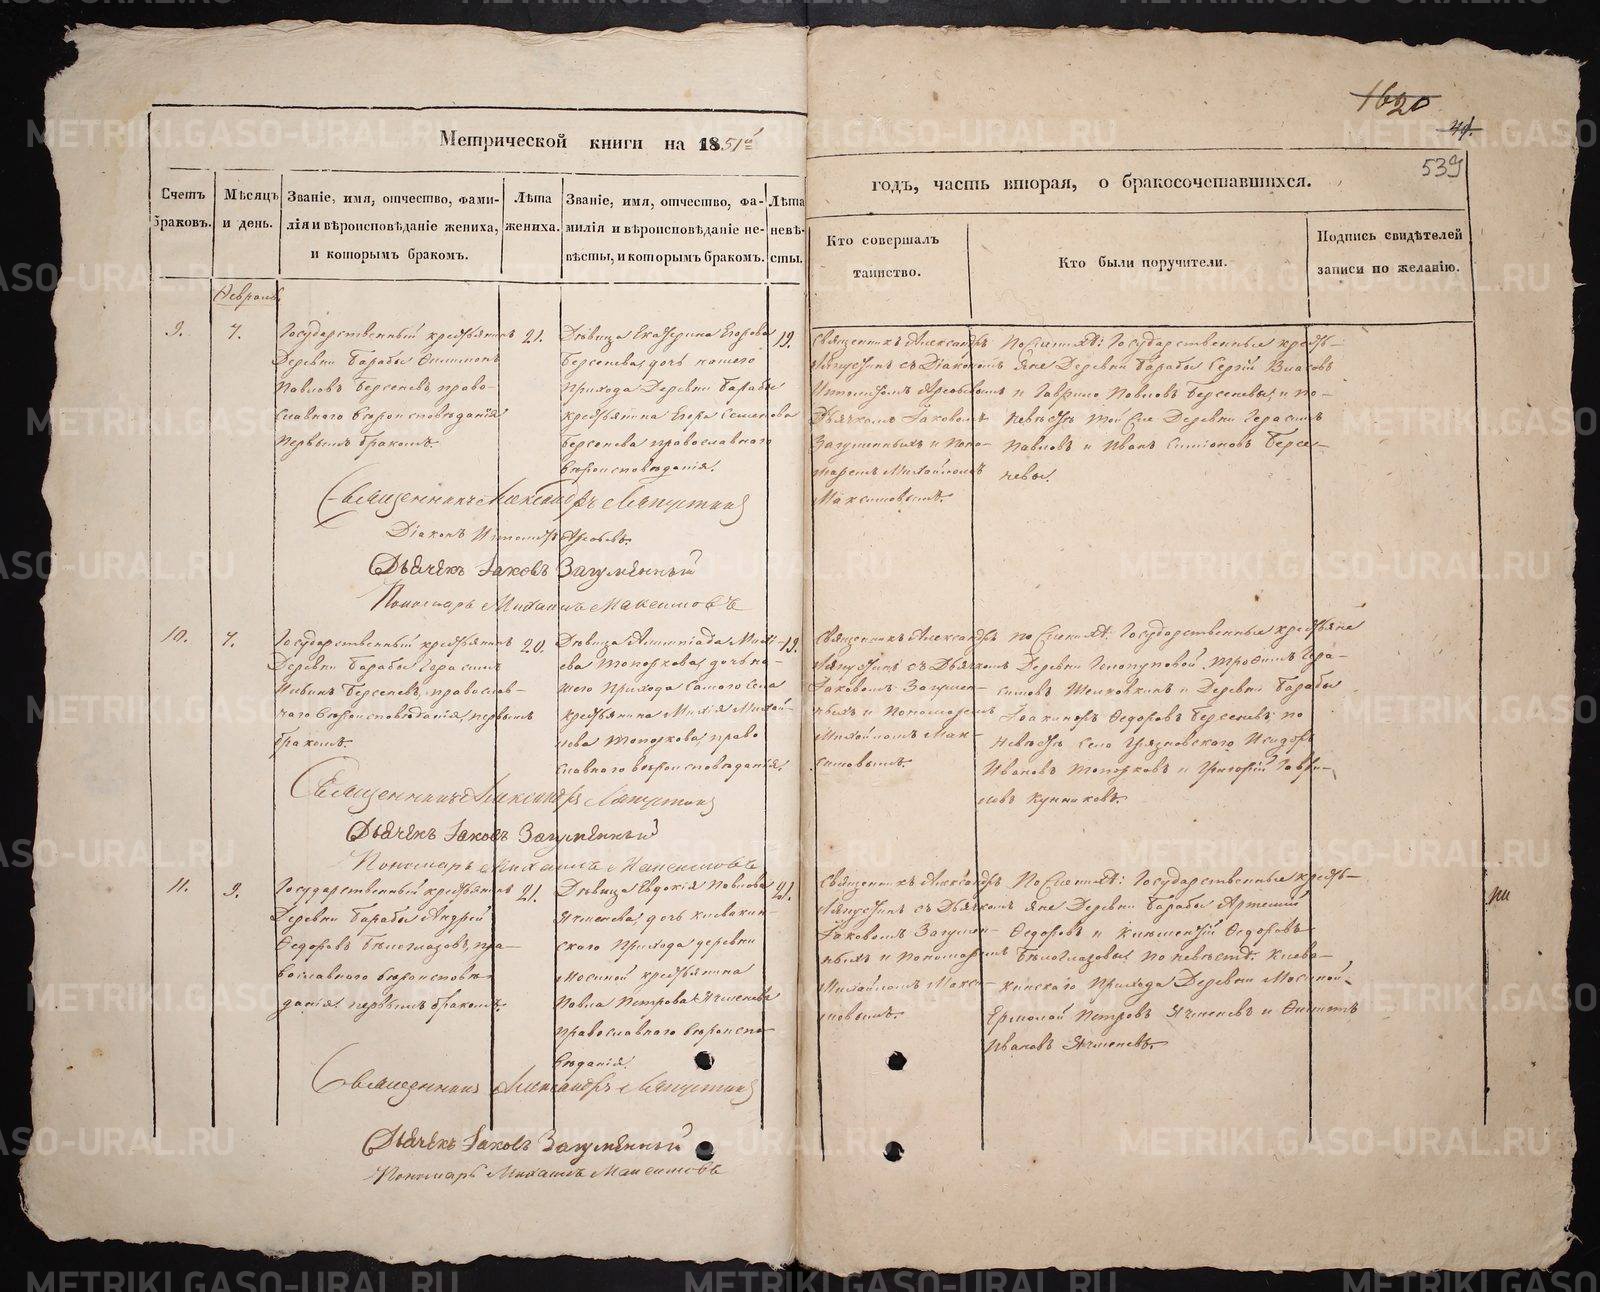 1620
41.
539
Метрической книги на 1851й
годъ, часть вторая, о бракосочетавшихся.
Счетъ браковъ.
Мѣсяцъ и день.
Званіе, имя, отчество, фами-
лія и вѣроисповѣданіе жениха,
и которымъ бракомъ.
Лѣта
жениха.
Званіе, имя, отчество, фа-
милія и вѣроисповѣданіе не-
вѣсты, и которымъ бракомъ.
Лѣта
невѣ-
сты.
Кто совершалъ
таинство.
Кто были поручители.
Подпись свидѣтелей
записи по желанію.
Февраль.
9.
7.
Государственный крестьянинъ
Деревни Барабы Филимонъ
Павловъ Берсеневъ, право-
славнаго вѣроисповѣданія
первымъ бракомъ.
21.
Дѣвица Екатерина Егорова
Берсенева, дочь нашего
прихода Деревни Барабы
крестьянина Егора Семенова
Берсенева православнаго
вѣроисповѣданія.
19.
Священникъ Александръ
Ляпустинъ съ Діакономъ
Дьячкомъ Іаковомъ
Загуменныхъ и Поно-
маремъ Михайломъ
Максимовымъ.
По женихѣ: Государственные кресть-
яне Деревни Барабы Сергій Власовъ
и Гаврило Павловъ Берсеневы, и по
невѣстѣ той же Деревни Герасимъ
Павловъ и Иванъ Симоновъ Берсе-
невы.
Священникъ Александръ Ляпустинъ
Діаконъ
Дьячекъ Іаковъ Загуменный
Пономарь Михаилъ Максимовъ
10.
7.
Государственный крестьянинъ
Деревни Барабы Герасимъ
Берсеневъ, православ-
наго вѣроисповѣданія, первымъ
бракомъ.
20.
Дѣвица Олимпіада Михе-
ева Топоркова, дочь на-
шего прихода самого села
крестьянина Михея Михай-
лова Топоркова право
славнаго вѣроисповѣданія.
19.
Священникъ Александръ
Ляпустинъ съ Дьячкомъ
Іаковомъ Загумен-
ныхъ и Пономаремъ
Михайломъ Мак-
симовымъ.
По женихѣ: Государственные крестьяне
Деревни Гелопуповой Трофимъ Гера-
симовъ Шелковкинъ и Деревни Барабы
Іоакимъ Федоровъ Берсеневъ; по
невѣстѣ Села Грязновскаго Исидоръ
Ивановъ Топорковъ и Григорій Гаври-
ловъ
Священникъ Александръ Ляпустинъ
Дьячекъ Іаковъ Загуменный
Пономарь Михаилъ Максимовъ
11.
9.
Государственный крестьянинъ
Деревни Барабы Андрей
Федоровъ Бѣлоглазовъ, пра-
вославнаго вѣроисповѣ-
данія, первымъ бракомъ.
21.
Дѣвица Евдокія Павлова
Ячменева, дочь кисвакин-
скаго прихода деревни
Мосиной крестьянина
Павла Петрова Ячменева
православнаго вѣроиспо-
вѣданія.
21.
Священникъ Александръ
Ляпустинъ съ Дьячкомъ
Іаковомъ Загумен-
ныхъ и Пономаремъ
Михайломъ Макси-
мовымъ.
По женихѣ: Государственные кресть-
яне Деревни Барабы Артемій
Федоровъ и Климентій Федоровъ
Бѣлоглазовы, по невѣстѣ: Кисва-
кинскаго прихода Деревни Мосиной
Ермолай Петровъ Ячменевъ и Филиппъ
Ивановъ Ячменевъ.
Священникъ Александръ Ляпустинъ
Дьячекъ Іаковъ Загуменный
Пономарь Михаилъ Максимовъ
METRIKI.GASO-URAL.RU